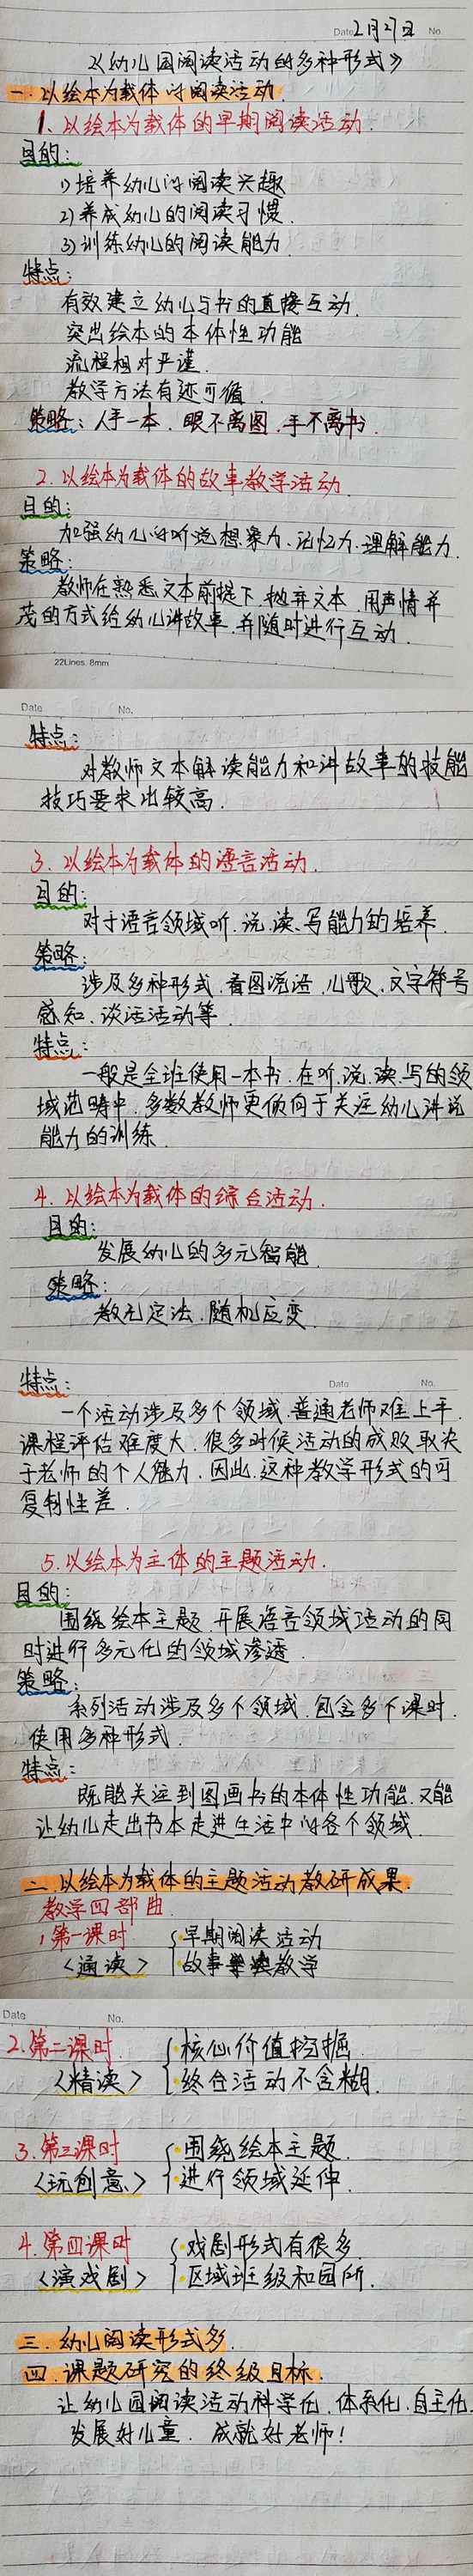 Date 2月27日 No.
《幼儿园阅读活动的多种形式》
一.以绘本为载体的阅读活动.
1.以绘本为载体的早期阅读活动.
目的:
1)培养幼儿的阅读兴趣
2)养成幼儿的阅读习惯.
3)训练幼儿的阅读能力.
特点:
有效建立幼儿与书的直接互动.
突出绘本的本体性功能
流程相对严谨.
教学方法有迹可循.
策略:人手一本.眼不离图.手不离书.
2.以绘本为载体的故事教学活动.
目的:
加强幼儿的听说想象力、记忆力.理解能力.
策略:
教师在熟悉文本前提下.抛弃文本.用声情并
茂的方式给幼儿讲故事.并随时进行互动.
22Lines. 8mm
Date No.
特点:
对教师文本解读能力和讲故事的技能
技巧要求比较高.
3.以绘本为载体的语言活动.
目的:
对于语言领域听.说.读.写能力的培养.
策略:
涉及多种形式.看图说话.儿歌.文字符号
感知.谈话活动等.
特点:
一般是全班使用一本书.在听.说.读.写的领
域范畴中.多数教师更倾向于关注幼儿讲说
能力的训练.
4.以绘本为载体的综合活动.
目的:
发展幼儿的多元智能.
策略:
教无定法.随机应变.
Date No.
特点:
一个活动涉及多个领域.普通老师难上手.
课程评估难度大.很多时候活动的成败取决
于老师的个人魅力.因此.这种教学形式的可
复制性差.
5.以绘本为主体的主题活动.
目的:
围绕绘本主题.开展语言领域活动的同
时进行多元化的领域渗透.
策略:
系列活动涉及多个领域.包含多个课时.
使用多种形式.
特点:
既能关注到图画书的本体性功能.又能
让幼儿走出书本走进生活中的各个领域.
二.以绘本为载体的主题活动教研成果.
教学四部曲.
1.第一课时 早期阅读活动
<通读> 故事教学
Date No.
2.第二课时. 核心价值挖掘.
<精读> 终合活动不含糊.
3.第三课时 围绕绘本主题.
<玩创意> 进行领域延伸.
4.第四课时 戏剧形式有很多.
<演戏剧> 区域班级和园所.
三.幼儿阅读形式多.
四.课题研究的终级目标.
让幼儿园阅读活动科学化.体系化.自主化.
发展好儿童.成就好老师!